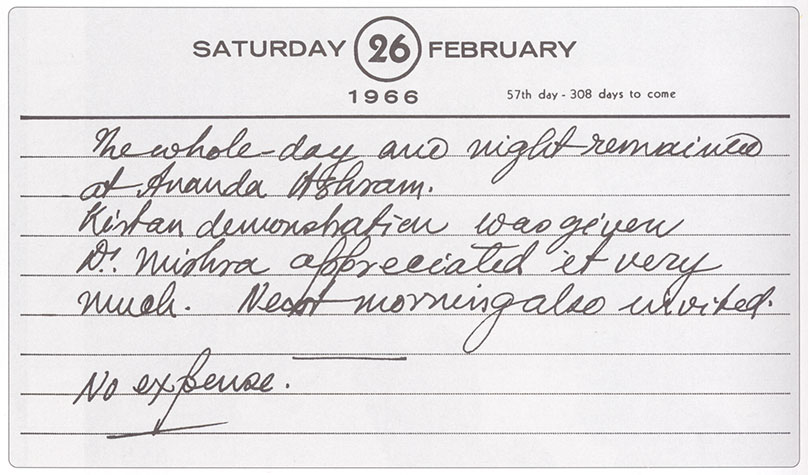 SATURDAY 26 FEBRUARY
1966 57th day - 308 days to come
The whole-day and night remained
at Ananda Ashram.
Kirtan demonstration was given
Dr. Mishra appreciated it very
much. Next morning also invited.
No expense.